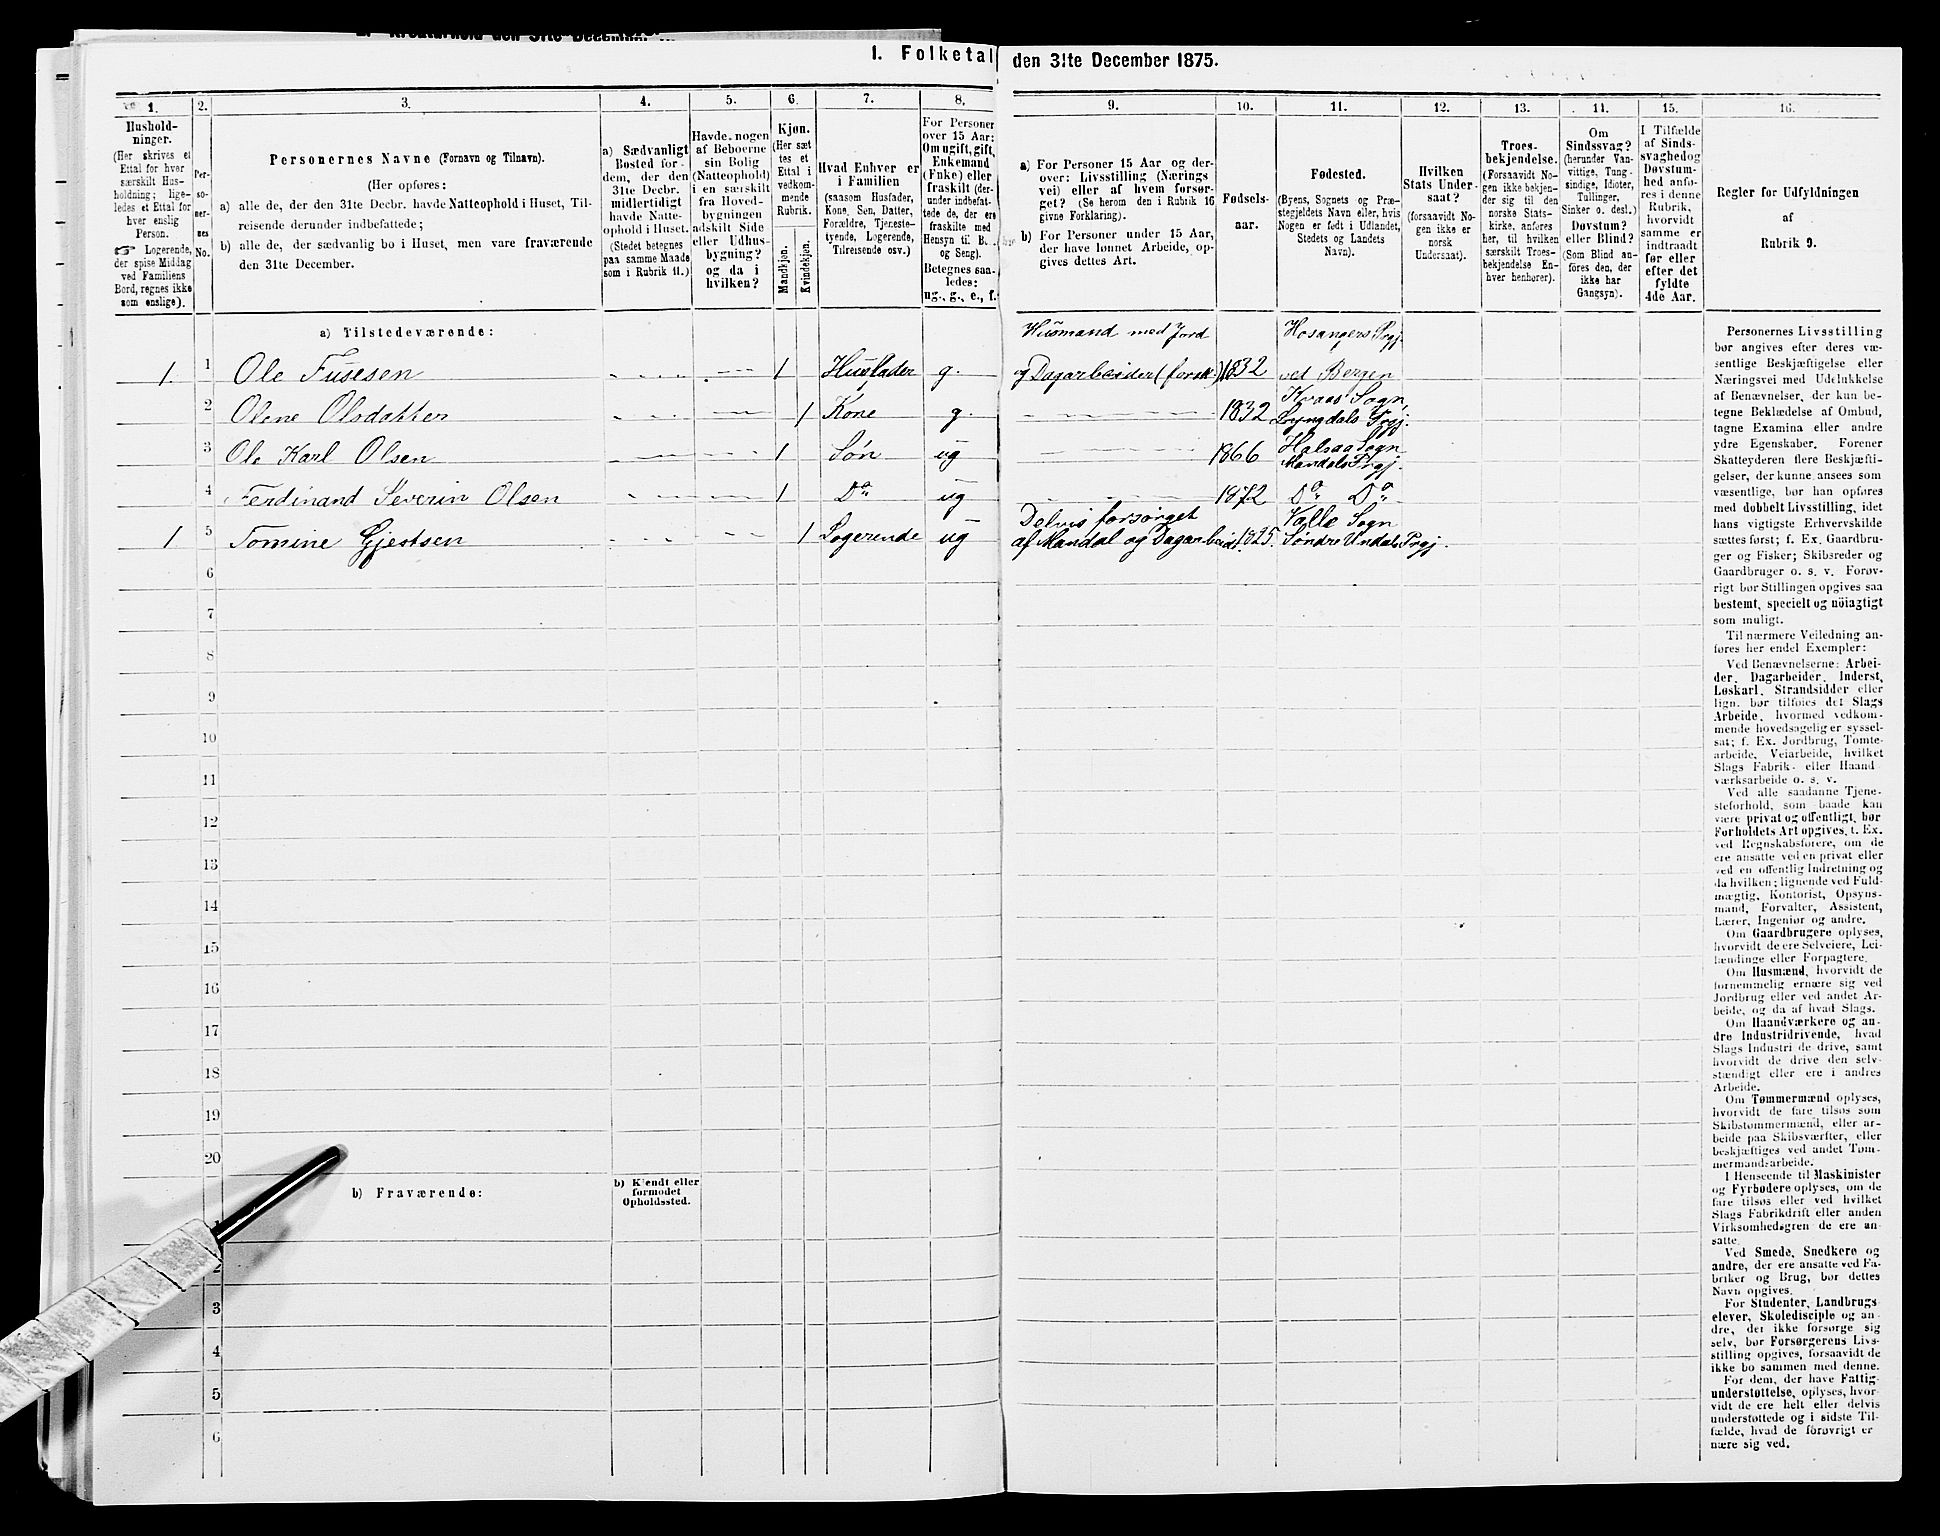 1. Folketal den 31te December 1875.
1.
Hushold-
ninger.
(Her skrives et
Ettal for hver
særskilt Hus-
holdning; lige-
ledes et Ettal for
hver enslig
Person.
☞ Logerende,
der spise Middag
ved Familiens
Bord, regnes ikke
som enslige).
2.
Per-
so-
ner-
nes
No.
3.
Personernes Navne (Fornavn og Tilnavn).
(Her opføres:
a) alle de, der den 31te Decbr. havde Natteophold i Huset, Til-
reisende derunder indbefattede;
b) alle de, der sædvanlig bo i Huset, men vare fraværende
den 31te December.
4.
a) Sædvanligt
Bosted for-
dem, der den
31te Decbr.
midlertidigt
havde Natte-
ophold i Huset.
(Stedet betegnes
paa samme Maade
som i Rubrik 11.)
5.
Havde nogen
af Beboerne
sin Bolig
(Natteophold)
i en særskilt
fra Hoved-
bygningen
adskilt Side
eller Udhus-
bygning?
og da i
hvilken?
6.
Kjøn.
(Her sæt
tes et
Ettal i
vedkom-
mende
Rubrik.
Mandkjøn.
Kvindekjøn.
7.
Hvad Enhver er
i Familien
(saasom Husfader,
Kone, Søn, Datter,
Forældre, Tjeneste-
tyende, Logerende,
Tilreisende osv.)
8.
For Personer
over 15 Aar:
Om ugift, gift,
Enkemand
(Enke) eller
fraskilt (der-
under indbefat-
tede de, der ere
fraskilte med
Hensyn til B
og Seng).
Betegnes saa-
ledes:
ug., g., e., f.
9.
a) For Personer 15 Aar og der-
over: Livsstilling (Nærings
vei) eller af hvem forsør-
get? (Se herom den i Rubrik 16
givne Forklaring).
b) For Personer under 15 Aar,
der have lønnet Arbeide, op-
gives dettes Art.
10.
Fødsels-
aar.
11.
Fødested.
(Byens, Sognets og Præ-
stegjeldets Navn eller, hvis
Nogen er født i Udlandet,
Stedets og Landets
Navn).
12.
Hvilken
Stats Under-
saat?
(forsaavidt No-
gen ikke er
norsk
Undersaat).
13.
Troes-
bekjendelse.
(Forsaavidt No-
gen ikke bekjen-
der sig til den
norske Stats-
kirke, anføres
her, til hvilken
særskilt Troes-
bekjendelse En-
hver henhører).
14.
Om
Sindssvag?
(herunder Van-
vittige, Tung-
sindige, Idioter,
Tullinger,
Sinker o. desl.)
Døvstum?
eller Blind?
(Som Blind an-
føres den, der
ikke har
Gangsyn).
15.
I Tilfælde
af Sinds-
svaghedog
Døvstum-
hed anfø-
res i denne
Rubrik,
hvorvidt
samme er
indtraadt
før eller
efter det
fyldte
4de Aar.
16.
Regler for Udfyldningen
af
Rubrik 9.
a) Tilstedeværende:
1. 1 Ole Fusesen 1 Husfader g. Husmand med Jord og Dagarbeider (forsk.) 1832 Hosangers Prgj. ved Bergen
2 Olene Olsdatter 1 Kone g. 1832 Kvaas Sogn, Lyngdals Prgj.
3 Ole Karl Olsen 1 Søn ug 1866 Halsaa Sogn Mandals Prgj.
4 Ferdinand Severin Olsen 1 Do ug 1872 Do Do
1 5 Tomine Gjertsen 1 Logerende ug Delvis forsørget af Mandal og Dagarbeide. 1825. Valle Sogn Søndre Undals Prgj.
6
7
8
9
10
11
12
13
14
15
16
17
18
19
20
b) Fraværende:
b) Kjendt eller
formodet
Opholdssted.
1
2
3
4
5
6
Personernes Livsstilling
bør angives efter deres væ-
sentlige Beskjæftigelse eller
Næringsvei med Udelukkelse
af Benævnelser, der kun be-
tegne Beklædelse af Ombud,
tagne Examina eller andre
ydre Egenskaber. Forener
Skatteyderen flere Beskjæfti-
gelser, der kunne ansees som
væsentlige, bør han opføres
med dobbelt Livsstilling, idet
hans vigtigste Erhvervskilde
sættes først; f. Ex. Gaardbru-
ger og Fisker; Skibsreder og
Gaardbruger o. s. v. Forøv-
rigt bør Stillingen opgives saa
bestemt, specielt og nöiagtigt
som muligt.
Til nærmere Veiledning an-
føres her endel Exempler:
Ved Benævnelserne: Arbei-
der, Dagarbeider, Inderst,
Løskarl, Strandsidder eller
lign. bør tilføies det Slags
Arbeide, hvormed vedkom-
mende hovedsagelig er syssel-
sat; f. Ex. Jordbrug, Tomte-
arbeide, Veiarbeide, hvilket
Slags Fabrik- eller Haand
værksarbeide o. s. v.
Ved alle saadanne Tjene-
steforhold, som baade kan
være privat og offentligt, bør
Forholdets Art opgives, t. Ex.
ved Regnskabsførere, om de
ere ansatte ved en privat eller
ved en offentlig Indretning og
da hvilken; lignende ved Fuld-
mægtig, Kontorist, Opsyns-
mand, Forvalter, Assistent,
Lærer, Ingeniør og andre.
Om Gaardbrugere oplyses,
hvorvidt de ere Selveiere, Lei-
lændinge eller Forpagtere.
Om Husmænd, hvorvidt de
fornemmelig ernære sig ved
Jordbrug eller ved andet Ar-
beide, og da af hvad Slags.
Om Haandværkere og an-
dre Industridrivende, hvad
Slags Industri de drive, samt
hvorvidt de drive den selv-
stændigt eller ere i andres
Arbeide.
Om Tømmermænd oplyses,
hvorvidt de fare tilsøs som
Skibstømmermænd, eller ar-
beide paa Skibsværfter, eller
beskjæftiges ved andet Tøm-
mermandsarbeide.
I Henseende til Maskinister
og Fyrbødere oplyses, om de
fare tilsøs eller ved hvilket
Slags Fabrikdrift eller anden
Virksomhedsgren de ere an-
satte.
Ved Smede, Snedkere og
andre, der ere ansatte ved Fa-
briker og Brug, bør dettes
Navn opgives.
For Studenter, Landbrugs
elever, Skoledisciple og an-
dre, der ikke forsørge sig
selv, bør Forsørgerens Livs-
stilling opgives, forsaavidt de
ikke bo sammen med denne.
For dem, der have Fattig-
understøttelse, oplyses, hvor-
vidt de ere helt eller delvis
understøttede og i sidste Til-
fælde, hvad de forøvrigt er
nære sig ved.